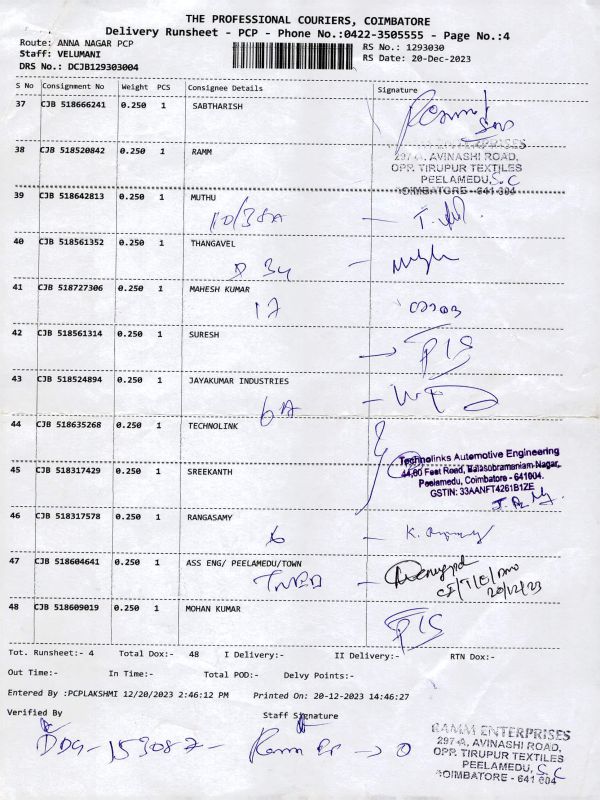 THE PROFESSIONAL COURIERS, COIMBATORE
Delivery Runsheet - PCP - Phone No.:0422-3505555 - Page No.:4
Route: ANNA NAGAR PCP RS No.: 1293030
Staff: VELUMANI RS Date: 20-Dec-2023
DRS No.: DCJB129303004
S No Consignment No Weight PCS Consignee Details Signature
37 CJB 518666241 0.250 1 SABTHARISH
RAMM ENTERPRISES
38 CJB 518520842 0.250 1 RAMM 297-A, AVINASHI ROAD,
OPP. TIRUPUR TEXTILES
PEELAMEDU, S.C
COIMBATORE - 641 004
39 CJB 518642813 0.250 1 MUTHU
10/38A
40 CJB 518561352 0.250 1 THANGAVEL
D 34
41 CJB 518727306 0.250 1 MAHESH KUMAR
17
42 CJB 518561314 0.250 1 SURESH
P/S
43 CJB 518524894 0.250 1 JAYAKUMAR INDUSTRIES
6A
44 CJB 518635268 0.250 1 TECHNOLINK
Technolinks Automotive Engineering
45 CJB 518317429 0.250 1 SREEKANTH 44,80 Feet Road, Balasobramaniam Nagar,
Peelamedu, Coimbatore - 641004.
GSTIN: 33AANFT4261B1ZE
46 CJB 518317578 0.250 1 RANGASAMY
6 K.
47 CJB 518604641 0.250 1 ASS ENG/ PEELAMEDU/TOWN
TNEB
20/12/23
48 CJB 518609019 0.250 1 MOHAN KUMAR
P/S
Tot. Runsheet:- 4 Total Dox:- 48 I Delivery:- II Delivery:- RTN Dox:-
Out Time:- In Time:- Total POD:- Delvy Points:-
Entered By :PCPLAKSHMI 12/20/2023 2:46:12 PM Printed On: 20-12-2023 14:46:27
Verified By Staff Signature
RAMM ENTERPRISES
297-A, AVINASHI ROAD,
OPP. TIRUPUR TEXTILES
PEELAMEDU, S.C
COIMBATORE - 641 004